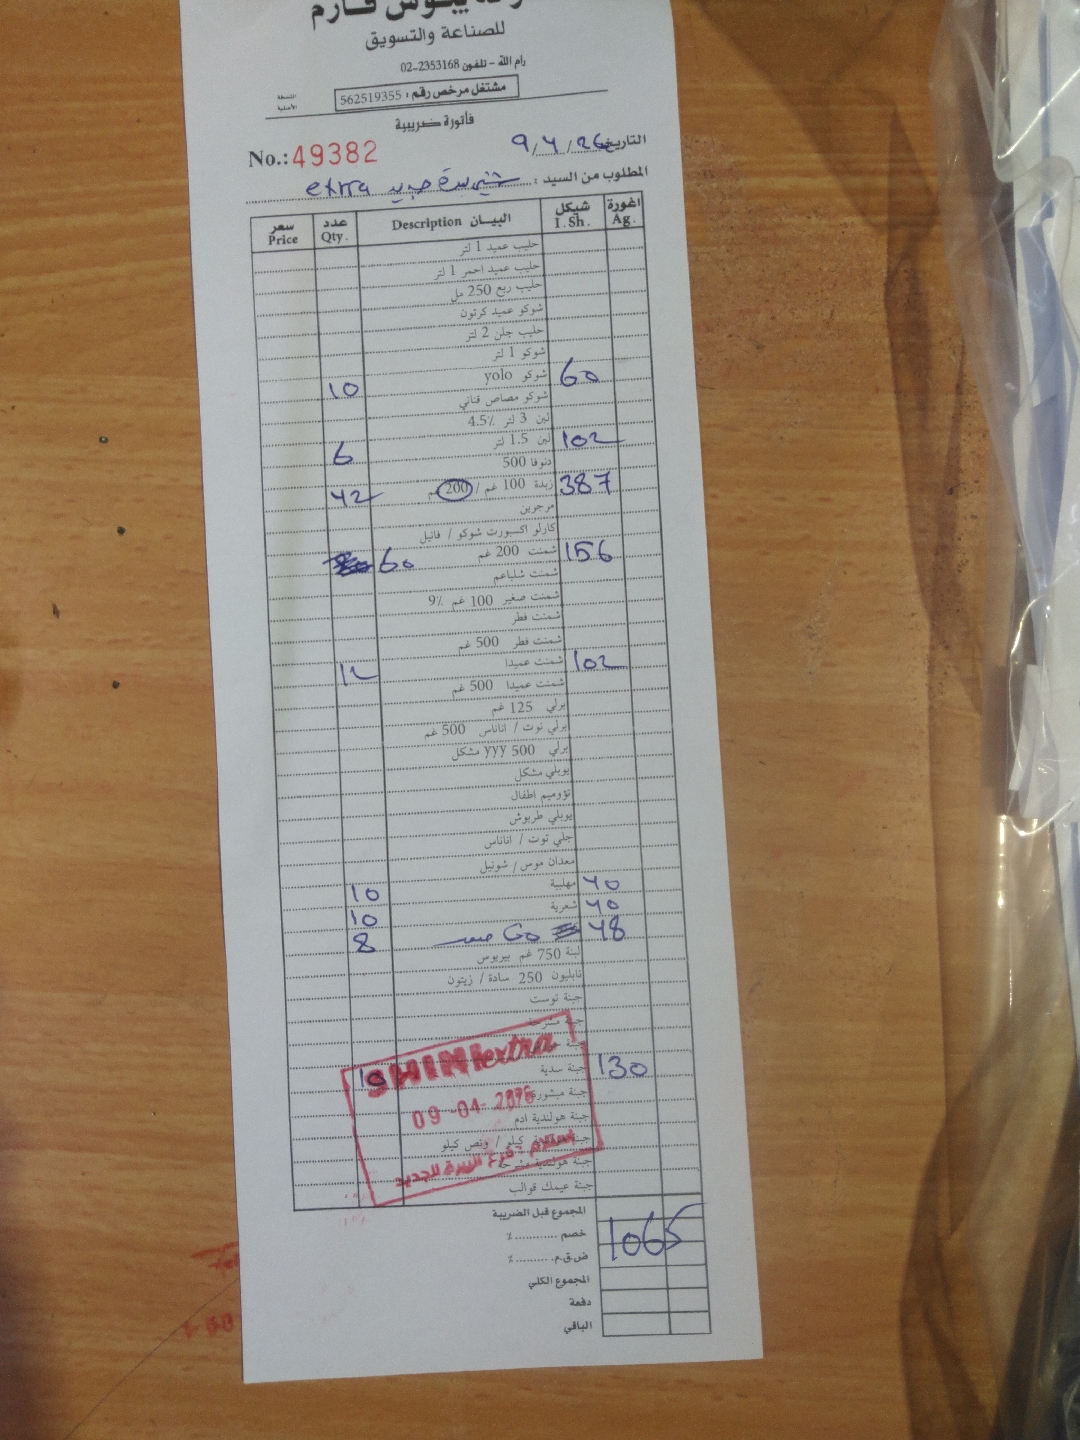 فارم
للصناعة والتسويق
رام الله - تلفون 2353168-02
مشتغل مرخص رقم : 562519355
النسخة الأصلية
فاتورة ضريبية
No.: 49382
التاريخ 9/4/26
المطلوب من السيد : جديد extra
سعر Price عدد Qty. البيــان Description شيكل I. Sh. اغورة Ag.
حليب عميد 1 لتر
حليب عميد احمر 1 لتر
حليب ربع 250 مل
شوكو عميد كرتون
حليب جلن 2 لتر
شوكو 1 لتر
10 شوكو yolo 60
شوكو مصاص قناني
لبن 3 لتر 4.5%
6 لبن 1.5 لتر 102
دنوفا 500
42 زبدة 100 غم / 200 غم 387
مرجرين
كارلو اكسبورت شوكو / فانيل
60 شمنت 200 غم 156
شمنت شلباعم
شمنت صغير 100 غم 9%
شمنت فطر
شمنت فطر 500 غم
12 شمنت عميدا 102
شمنت عميدا 500 غم
برلي 125 غم
برلي توت / اناناس 500 غم
برلي yyy 500 مشكل
يوبلي مشكل
تؤوميم اطفال
يوبلي طربوش
جلي توت / اناناس
معدان موس / شونيل
10 مهلبية 40
10 شعرية 40
8 Go 48
لبنة 750 غم بيريوس
نابليون 250 سادة / زيتون
جبنة توست
جبنة مشرحة
جبنة
10 جبنة سدية 130
جبنة مبشورة
جبنة هولندية ادم
جبنة كيلو / ونص كيلو
جبنة هولندية مشرحة
جبنة عيمك قوالب
SHINI extra
09-04-2026
استلام - فرع البيرة الجديد
المجموع قبل الضريبة
خصم ........... %
ض.ق.م. .......... %
1065
المجموع الكلي
دفعة
الباقي